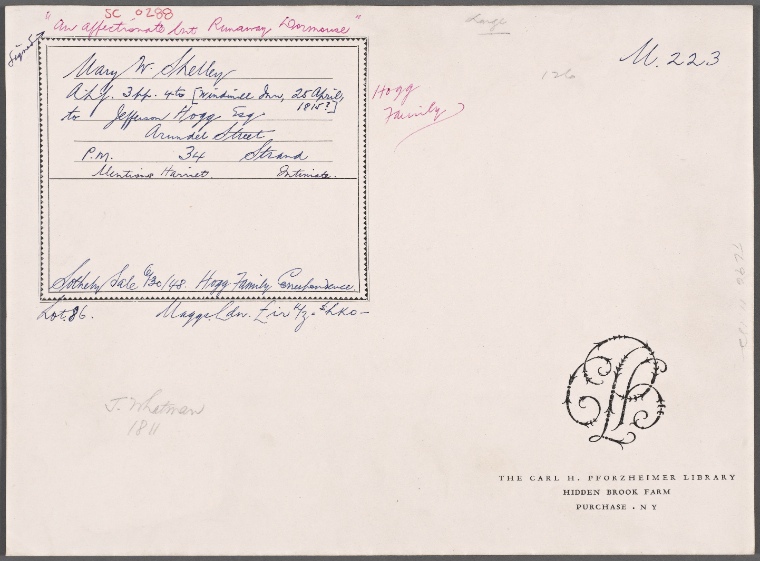 SC 0288
"An affectionate but Runaway Dormouse"
Signed
Mary W. Shelley
A.L.S. 3 pp. 4to [Windmill Inn, 25 April,
1815?]
to Jefferson Hogg Esq
Arundel Street
P.M. 34 Strand
Mentions Harriet. Intimate.
Sotheby Sale 6/30/48. Hogg Family Correspondence.
Lot 86. Maggs Ldn.
Hogg
Family
Large
126
M. 223
J. Whatman
1811
THE CARL H. PFORZHEIMER LIBRARY
HIDDEN BROOK FARM
PURCHASE . N Y